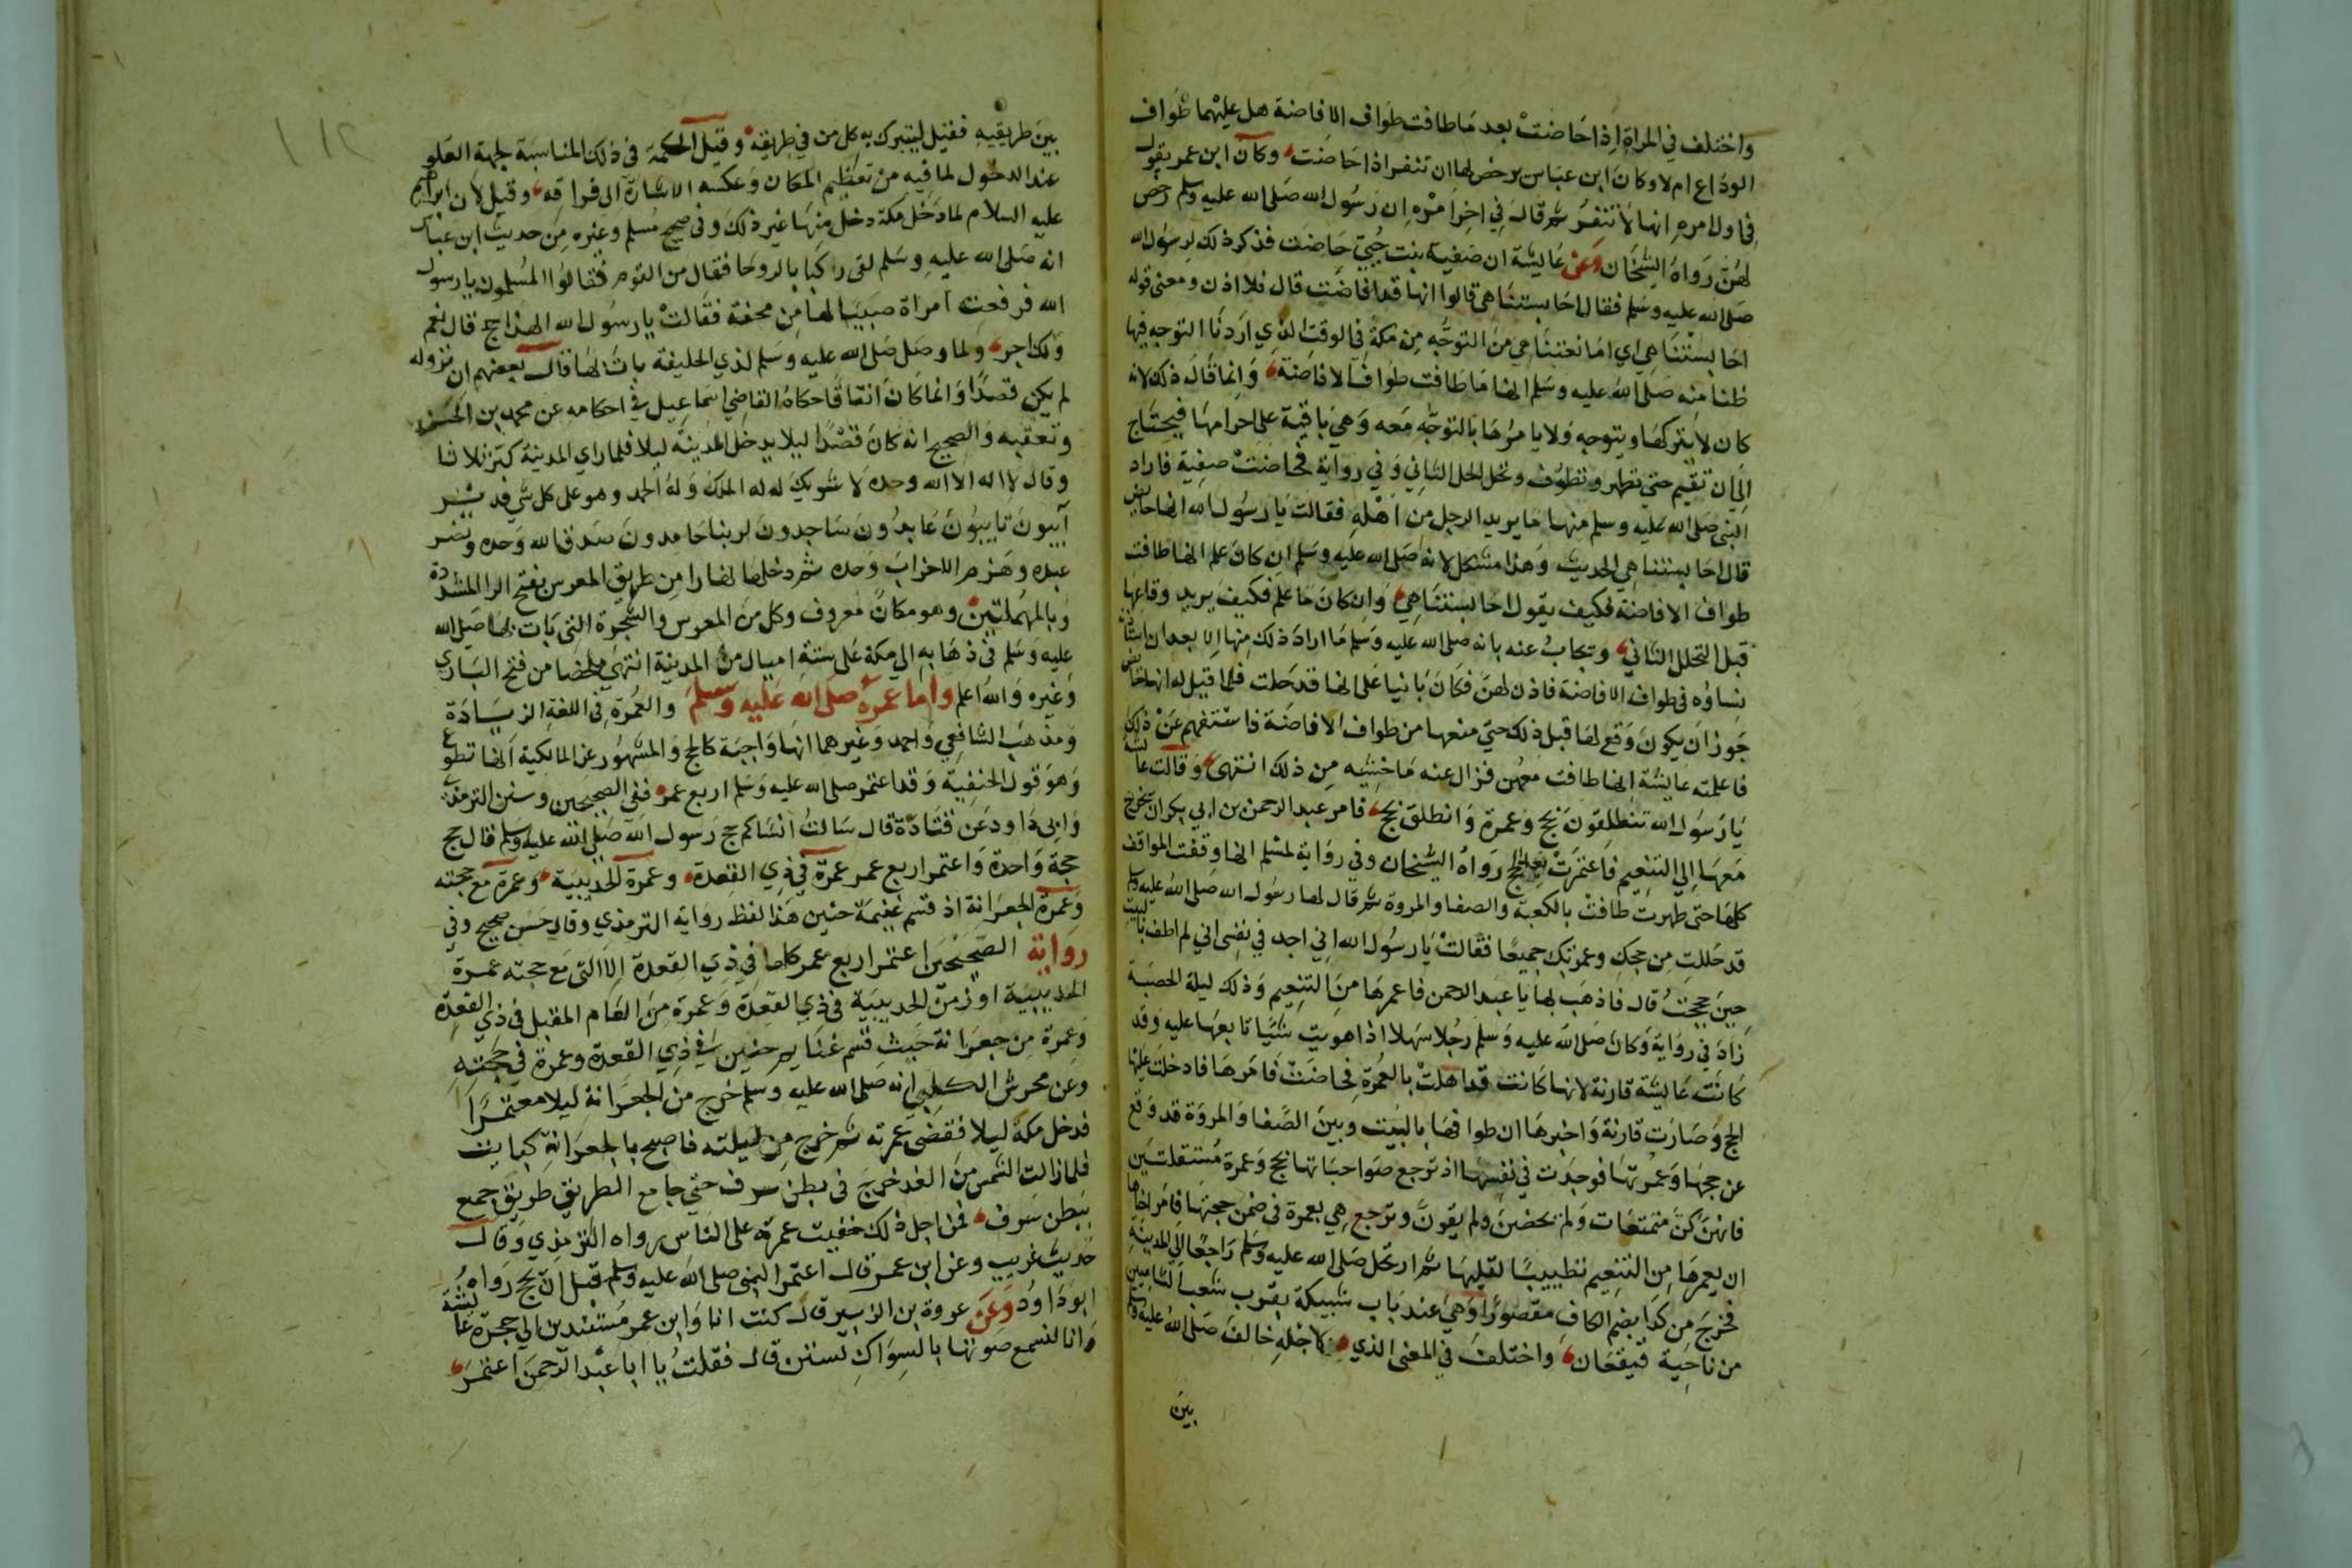 واختلف في المراة اذا حاضت بعد ما طافت طواف الافاضة هل عليها طواف
الوداع ام لا وكان ابن عباس يرخص لها ان تنفر اذا حاضت وكان ابن عمر يقول
في اول امره انها لا تنفر ثم قال في اخر امره ان رسول الله صلى الله عليه وسلم رخص
لهن رواه الشيخان وعن عايشة ان صفية بنت حيي حاضت فذكر ذلك لرسول الله
صلى الله عليه وسلم فقال احابستنا هي قالوا انها قد افاضت قال فلا اذن ومعنى قوله
احابستنا هي اي امانعتنا هي من التوجه من مكة في الوقت الذي اردنا التوجه فيها
ظنا منه صلى الله عليه وسلم انها ما طافت طواف الافاضة وانما قال ذلك لانه
كان لا يتركها ويتوجه ولا يامرها بالتوجه معه وهي باقية على احرامها فيحتاج
الى ان تقيم حتى تطهر وتطوف وتحل الحل الثاني وفي رواية فحاضت صفية فاراد
النبي صلى الله عليه وسلم منها ما يريد الرجل من اهله فقالت يا رسول الله انها حايض
قال احابستنا هي الحديث وهذا مشكل لانه صلى الله عليه وسلم ان كان علم انها طافت
طواف الافاضة فكيف يقول احابستنا هي وان كان ما علم فكيف يريد وقاعها
قبل التحلل الثاني ويجاب عنه بانه صلى الله عليه وسلم ما اراد ذلك منها الا بعد ان استاذنه
نساؤه في طواف الافاضة فاذن لهن فكان بانيا على انها قد حلت فلما قيل له انها حايض
جوز ان يكون وقع لها قبل ذلك حتى منعها من طواف الافاضة فاستفهم عن ذلك
فاعلمته عايشة انها طافت معهن فزال عنه ما خشيه من ذلك انتهى وقالت عايشة
يا رسول الله تنطلقون بحج وعمرة وانطلق بحج فامر عبد الرحمن بن ابي بكر ان يخرج
معها الى التنعيم فاعتمرت بعد الحج رواه الشيخان وفي رواية لمسلم انها وقفت المواقف
كلها حتى طهرت طافت بالكعبة والصفا والمروة ثم قال لها رسول الله صلى الله عليه وسلم
قد حللت من حجك وعمرتك جميعا فقالت يا رسول الله اني اجد في نفسي اني لم اطف بالبيت
حين حججت قال فاذهب بها يا عبد الرحمن فاعمرها من التنعيم وذلك ليلة الحصبة
زاد في رواية وكان صلى الله عليه وسلم رجلا سهلا اذا هويت شيا تابعها عليه وقد
كانت عايشة قارنة لانها كانت قد اهلت بالعمرة فحاضت فامرها فادخلت عليها
الحج وصارت قارنة واخبرها ان طوافها بالبيت وبين الصفا والمروة قد وقع
عن حجها وعمرتها فوجدت في نفسها اذ ترجع صواحباتها بحج وعمرة مستقلتين
فانهن كن متمتعات ولم يحضن ولم يقرن وترجع هي بعمرة في ضمن حجتها فامر اخاها
ان يعمرها من التنعيم تطييبا لقلبها ثم ارتحل صلى الله عليه وسلم راجعا الى المدينة
فخرج من كدا بضم الكاف مقصورا وهي عند باب شبيكة بقرب شعب الشاميين
من ناحية قيقعان واختلف في المعنى الذي لاجله خالف صلى الله عليه وسلم
بين
بين طريقيه فقيل ليتبرك به كل من في طريقه وقيل الحكمة في ذلك المناسبة لجهة العلو
عند الدخول لما فيه من تعظيم المكان وعكسه الاشارة الى فراقه وقيل لان ابراهيم
عليه السلام لما دخل مكة دخل منها غير ذلك وفي صحيح مسلم وغيره من حديث ابن عباس
انه صلى الله عليه وسلم لقى راكبا بالروحا فقال من القوم فقالوا المسلمون يا رسول
الله فرفعت امراة صبيا لها من محفة فقالت يا رسول الله الهذا حج قال نعم
ولك اجر ولما وصل صلى الله عليه وسلم لذي الحليفة بات لها قال بعضهم ان نزوله
لم يكن قصدا وانما كان اتفاقا حكاه القاضي اسماعيل في احكامه عن محمد بن الحسن
وتعقبه والصحيح انه كان قصدا ليلا يدخل المدينة ليلا فلما راى المدينة كبر ثلاثا
وقال لا اله الا الله وحده لا شريك له له الملك وله الحمد وهو على كل شي قدير
آيبون تايبون عابدون ساجدون لربنا حامدون صدق الله وحده ونصر
عبده وهزم الاحزاب وحده ثم دخلها نهارا من طريق المعرس بفتح الرا المشددة
وبالمهملتين وهو مكان معروف وكل من المعرس والشجرة التي بات بها صلى الله
عليه وسلم في ذهابه الى مكة على ستة اميال من المدينة انتهى ملخصا من فتح الباري
وغيره والله اعلم واما عمره صلى الله عليه وسلم والعمرة في اللغة الزيادة
ومذهب الشافعي واحمد وغيرهما انها واجبة كالحج والمشهور عن المالكية انها تطوع
وهو قول الحنفية وقد اعتمر صلى الله عليه وسلم اربع عمر ففي الصحيحين وسنن الترمذي
وابي داود عن قتادة قال سالت انسا كم حج رسول الله صلى الله عليه وسلم قال حج
حجة واحدة واعتمر اربع عمر عمرة في ذي القعدة وعمرة الحديبية وعمرة مع حجته
وعمرة الجعرانة اذ قسم غنيمة حنين هذا لفظ رواية الترمذي وقال حسن صحيح وفي
رواية الصحيحين اعتمر اربع عمر كلها في ذي القعدة الا التي مع حجته عمرة
الحديبية او زمن الحديبية في ذي القعدة وعمرة من العام المقبل في ذي القعدة
وعمرة من جعرانة حيث قسم غنايم حنين في ذي القعدة وعمرة في حجته
وعن محرش الكعبي انه صلى الله عليه وسلم خرج من الجعرانة ليلا معتمرا
فدخل مكة ليلا فقضى عمرته ثم خرج من ليلته فاصبح بالجعرانة كبايت
فلما زالت الشمس من الغد خرج في بطن سرف حتى جامع الطريق طريق جمع
ببطن سرف فمن اجل ذلك خفيت عمرته على الناس رواه الترمذي وقال
حديث غريب وعن ابن عمر قال اعتمر النبي صلى الله عليه وسلم قبل ان يحج رواه
ابو داود وعن عروة بن الزبير قال كنت انا وابن عمر مستندين الى حجرة عايشة
وانا لنسمع صوتها بالسواك تستن قال فقلت يا ابا عبد الرحمن اعتمر